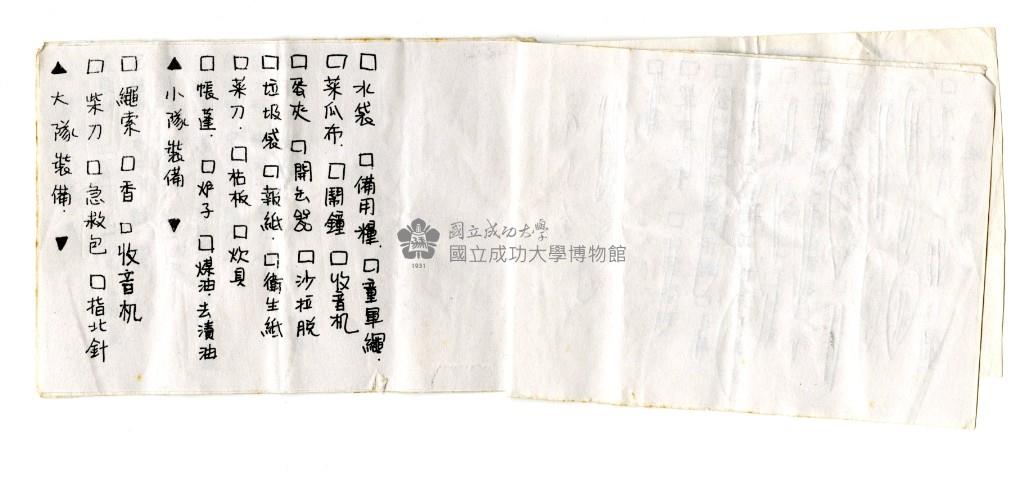 ▲大隊裝備.▼
□柴刀 □急救包 □指北針
□繩索 □香 □收音机
▲小隊裝備 ▼
□帳蓬. □炉子 □煤油.去漬油
□菜刀. □枯板 □炊具
□垃圾袋 □報紙. □衛生紙
□蛋夾 □開缶器 □沙拉脫
□菜瓜布. □鬧鐘 □收音机
□水袋 □備用糧. □童軍繩.
國立成功大學
國立成功大學博物館
1931